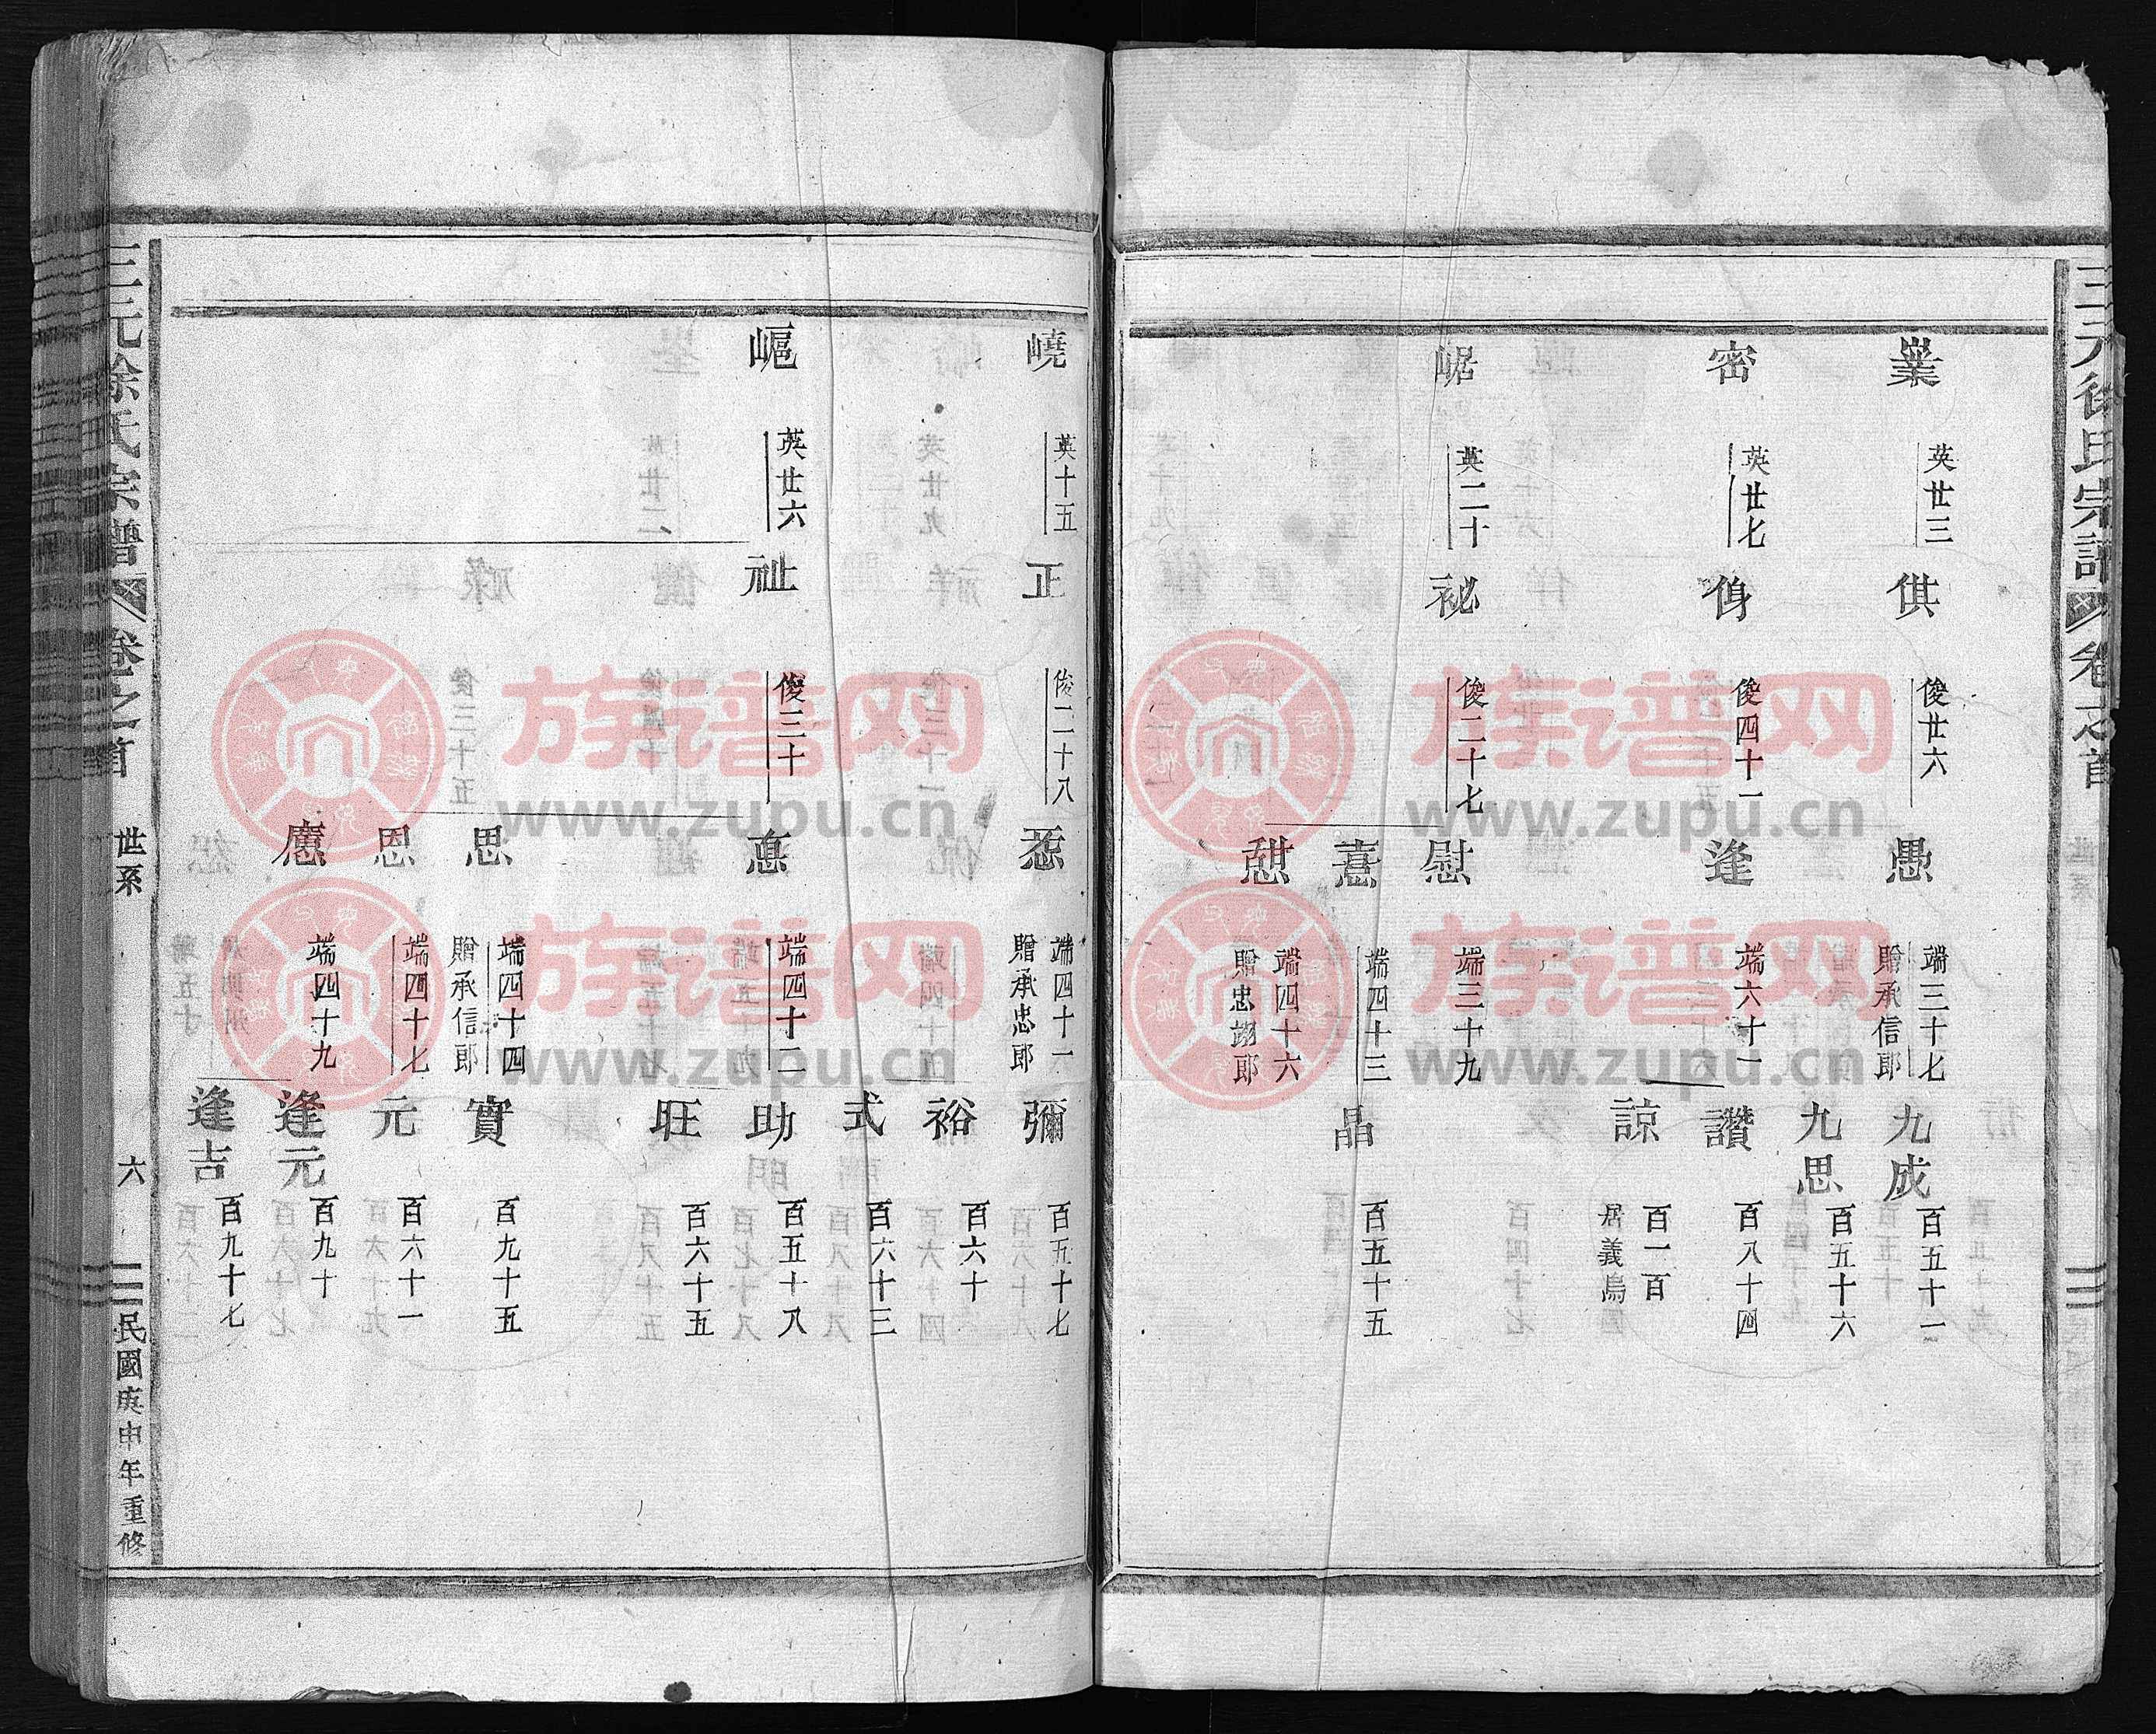 三元徐氏宗譜 卷之首
業 密 㟲
英世三
英世七
英二十
供 㑗 祕
俊世六
俊四十一
俊二十七
愚 逢 慰 憙 憇
端三十七
贈承信郎
端六十一
端三十九
端四十三
端四十六
贈忠翊郎
九成 九思 讚 諒 晶
百五十一
百五十六
百八十四
百一百
居義烏
百五十五
嶢
英十五
英世六
正 祉
俊二十八
俊三十
思 恩 應
端四十一
贈承忠郎
端四十二
端四十四
贈承信郎
端四十七
端四十九
彌 裕 式 助 旺 實 元 逢元 逢吉
百五十七
百六十
百六十三
百五十八
百六十五
百九十五
百六十一
百九十
百九十七
三元徐氏宗譜 卷之首 世系 六 民國庚申年重修
族谱网
www.zupu.cn
族谱网
www.zupu.cn
族谱网
www.zupu.cn
族谱网
www.zupu.cn